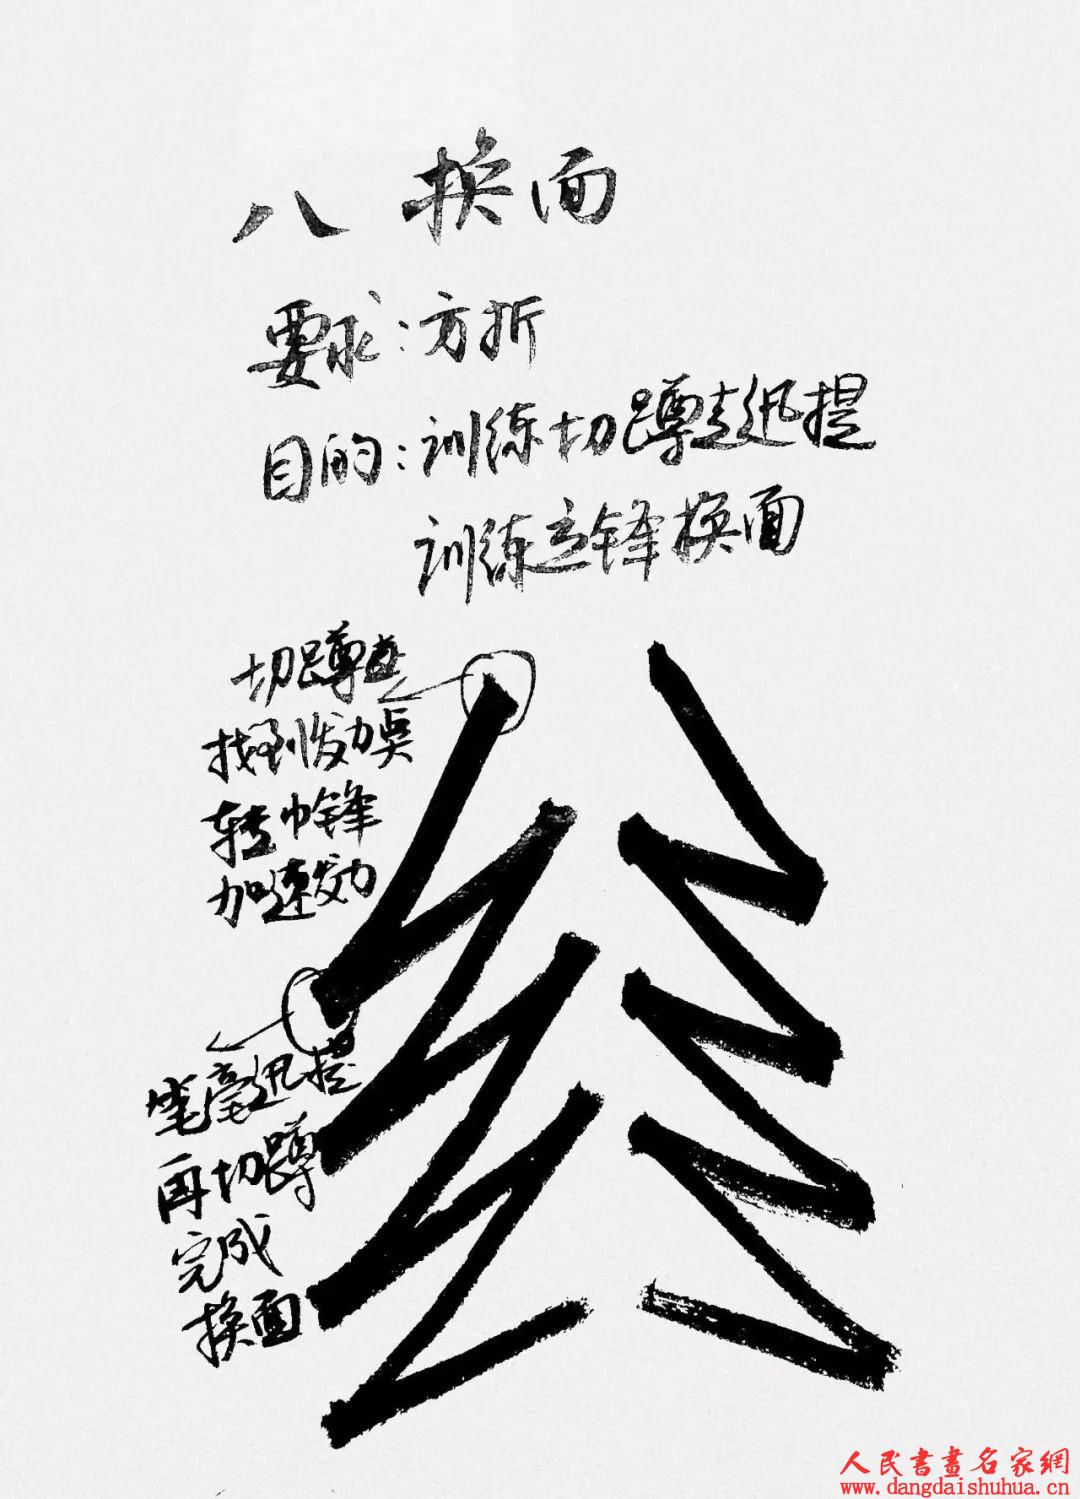 八 换面
要求:方折
目的:训练切蹲起迅提
训练立锋换面
切蹲
找到发力点
转中锋
加速发力
笔毫迅提
再切蹲
完成
换面
人民書畫名家網
www.dangdaishuhua.cn